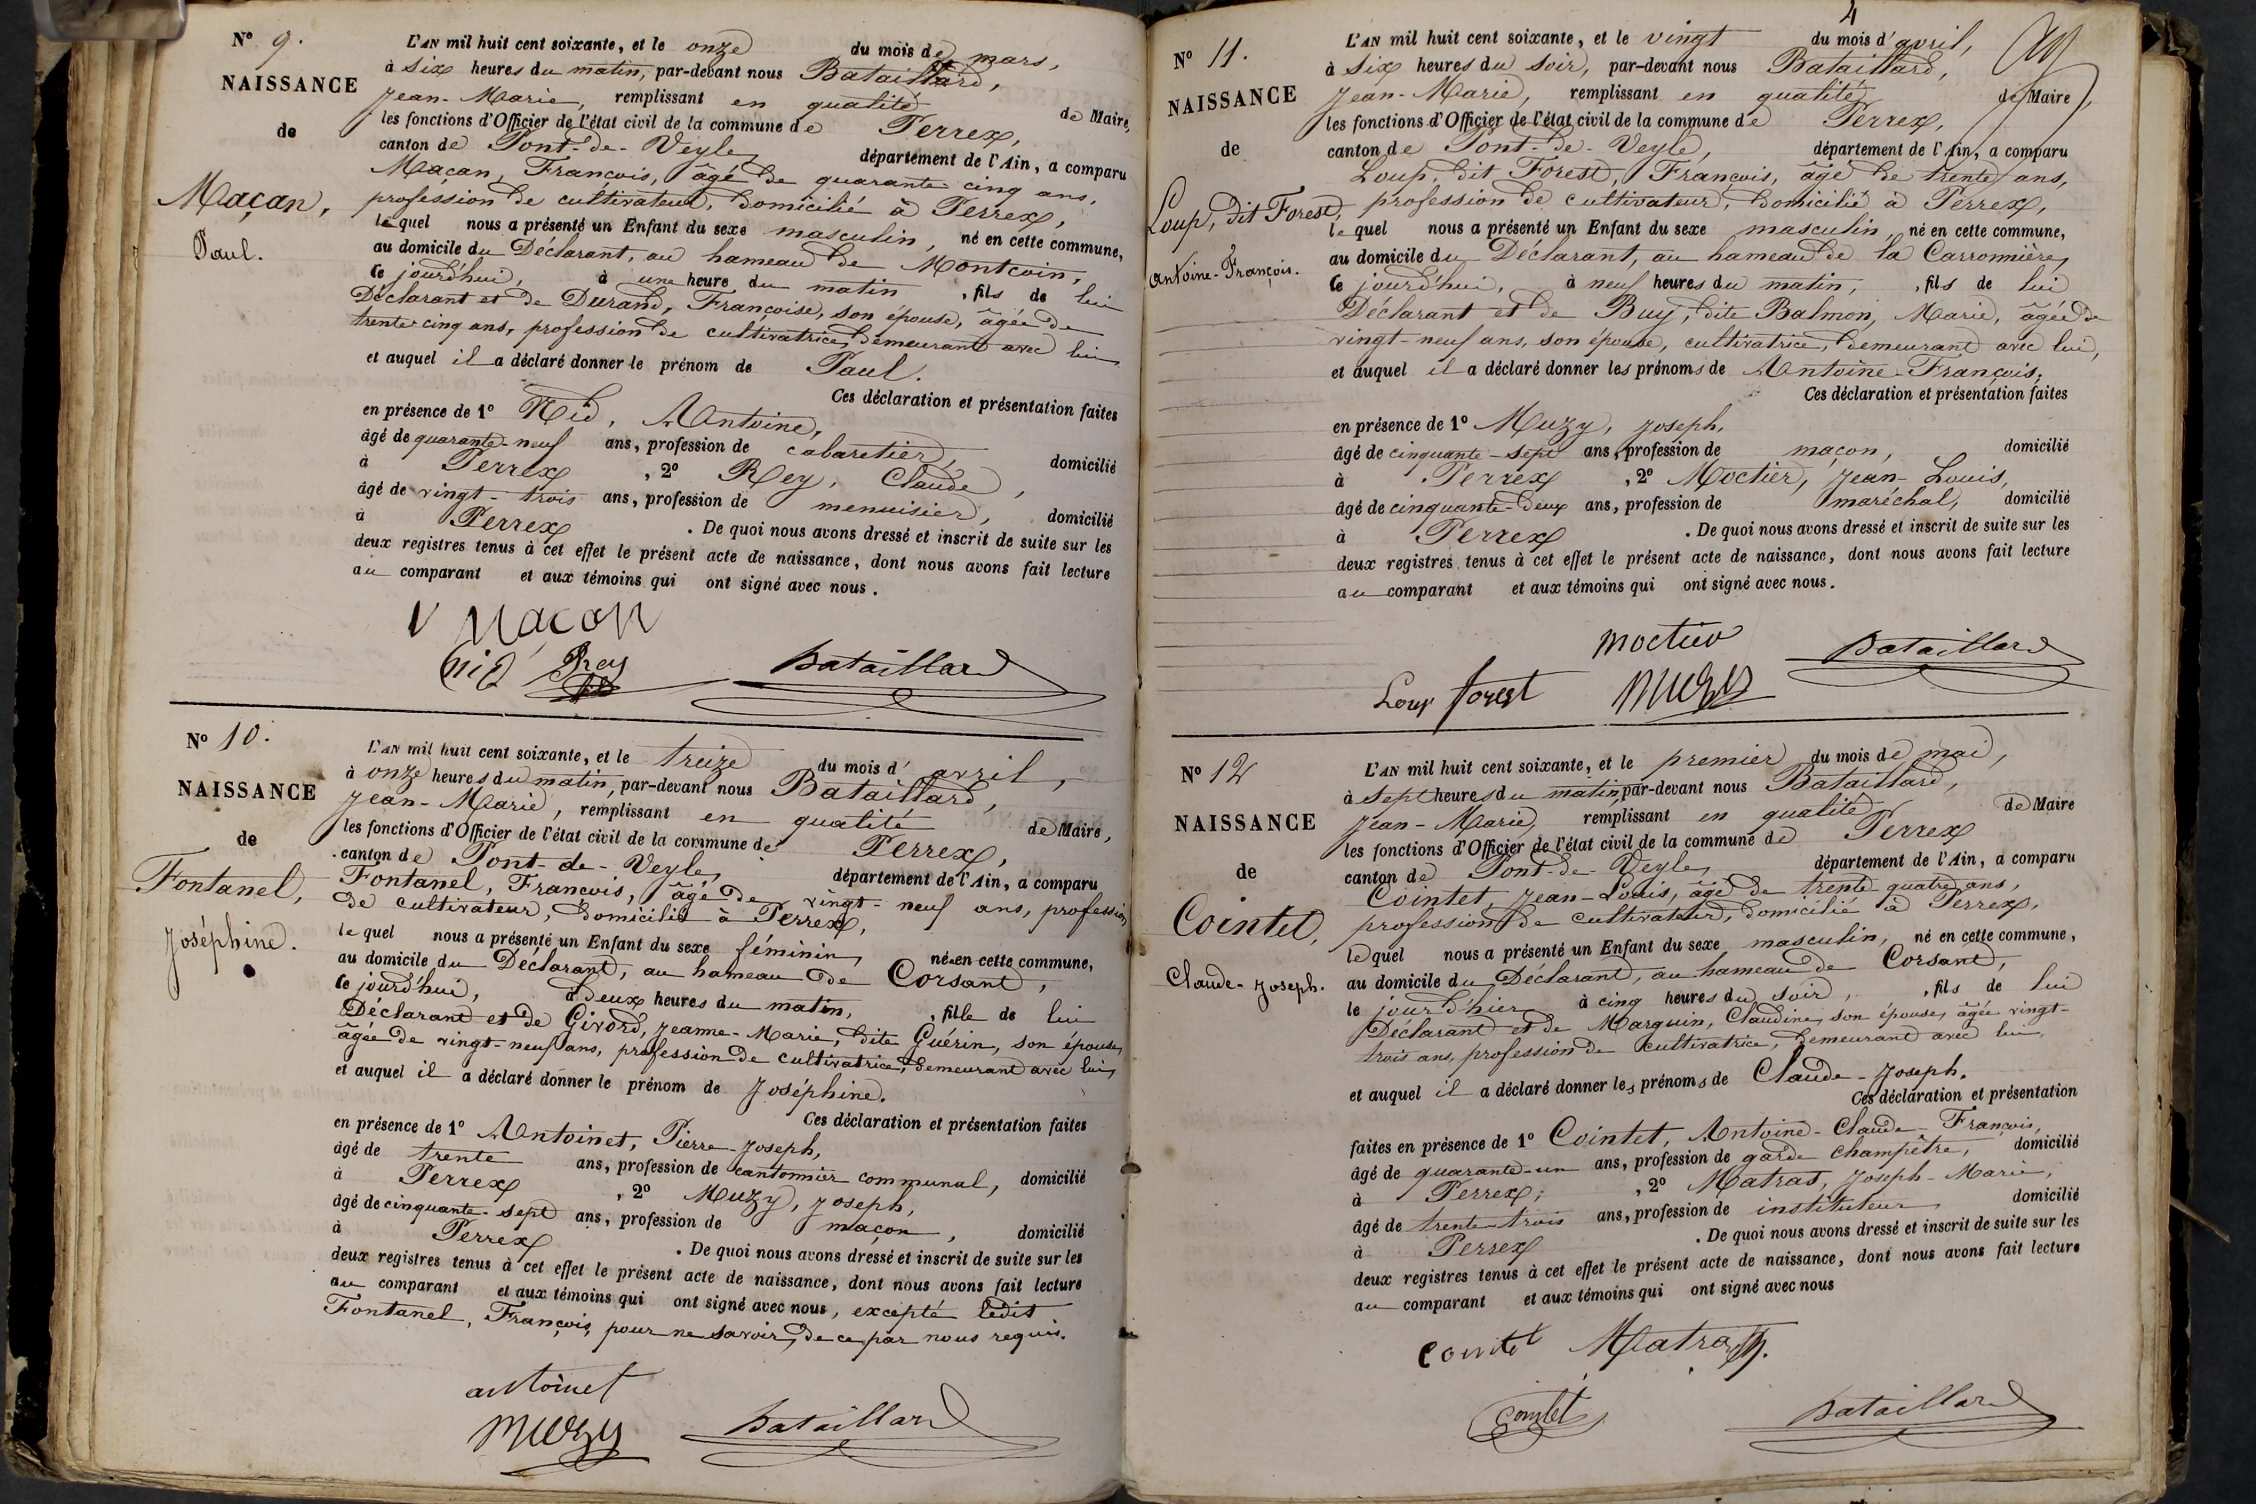 N° 9.
NAISSANCE
de
Maçan,
Paul.
L'AN mil huit cent soixante, et le onze du mois de mars,
à six heures du matin, par-devant nous Bataillard,
Jean-Marie, remplissant en qualité de Maire,
les fonctions d'Officier de l'état civil de la commune de Perrex,
canton de Pont-de-Veyle, département de l'Ain, a comparu
Maçan, François, âgé de quarante cinq ans,
profession de cultivateur, domicilié à Perrex,
lequel nous a présenté un Enfant du sexe masculin, né en cette commune,
au domicile du Déclarant, au hameau de Montcoin,
ce jourd'hui, à une heure du matin, fils de lui
Déclarant et de Durand, Françoise, son épouse, âgée de
trente-cinq ans, profession de cultivatrice, demeurant avec lui
et auquel il a déclaré donner le prénom de Paul.
Ces déclaration et présentation faites
en présence de 1° Nid, Antoine,
âgé de quarante-neuf ans, profession de cabaretier, domicilié
à Perrex, 2° Rey, Claude,
âgé de vingt-trois ans, profession de menuisier, domicilié
à Perrex. De quoi nous avons dressé et inscrit de suite sur les
deux registres tenus à cet effet le présent acte de naissance, dont nous avons fait lecture
au comparant et aux témoins qui ont signé avec nous.
Macon
nid Rey Bataillard
N° 10.
NAISSANCE
de
Fontanel,
Joséphine.
L'AN mil huit cent soixante, et le treize du mois d'avril,
à onze heures du matin, par-devant nous Bataillard,
Jean-Marie, remplissant en qualité de Maire,
les fonctions d'Officier de l'état civil de la commune de Perrex,
canton de Pont-de-Veyle, département de l'Ain, a comparu
Fontanel, François, âgé de vingt-neuf ans, profession
de cultivateur, domicilié à Perrex,
lequel nous a présenté un Enfant du sexe féminin, né en cette commune,
au domicile du Déclarant, au hameau de Corsant,
ce jourd'hui, à deux heures du matin, fille de lui
Déclarant et de Givord, Jeanne-Marie, dite Guérin, son épouse,
âgée de vingt-neuf ans, profession de cultivatrice, demeurant avec lui,
et auquel il a déclaré donner le prénom de Joséphine.
Ces déclaration et présentation faites
en présence de 1° Antoinet, Pierre-Joseph,
âgé de trente ans, profession de cantonnier communal, domicilié
à Perrex, 2° Muzy, Joseph,
âgé de cinquante-sept ans, profession de maçon, domicilié
à Perrex. De quoi nous avons dressé et inscrit de suite sur les
deux registres tenus à cet effet le présent acte de naissance, dont nous avons fait lecture
au comparant et aux témoins qui ont signé avec nous, excepté ledit
Fontanel, François, pour ne savoir, de ce par nous requis.
antoinet
Muzy Bataillard
4
N° 11.
NAISSANCE
de
Loup, dit Forest,
Antoine-François.
L'AN mil huit cent soixante, et le vingt du mois d'avril,
à six heures du soir, par-devant nous Bataillard,
Jean-Marie, remplissant en qualité de Maire,
les fonctions d'Officier de l'état civil de la commune de Perrex,
canton de Pont-de-Veyle, département de l'Ain, a comparu
Loup, dit Forest, François, âgé de trente ans,
profession de cultivateur, domicilié à Perrex,
lequel nous a présenté un Enfant du sexe masculin, né en cette commune,
au domicile du Déclarant, au hameau de la Carronnière,
ce jourd'hui, à neuf heures du matin, fils de lui
Déclarant et de Buy, dite Balmon, Marie, âgée de
vingt-neuf ans, son épouse, cultivatrice, demeurant avec lui,
et auquel il a déclaré donner les prénoms de Antoine-François.
Ces déclaration et présentation faites
en présence de 1° Muzy, Joseph,
âgé de cinquante-sept ans, profession de maçon, domicilié
à Perrex, 2° Moctier, Jean-Louis,
âgé de cinquante-deux ans, profession de maréchal, domicilié
à Perrex. De quoi nous avons dressé et inscrit de suite sur les
deux registres tenus à cet effet le présent acte de naissance, dont nous avons fait lecture
au comparant et aux témoins qui ont signé avec nous.
moctier Bataillard
Loup forest Muzy
N° 12
NAISSANCE
de
Cointet,
Claude-Joseph.
L'AN mil huit cent soixante, et le premier du mois de mai,
à sept heures du matin, par-devant nous Bataillard,
Jean-Marie, remplissant en qualité de Maire
les fonctions d'Officier de l'état civil de la commune de Perrex
canton de Pont-de-Veyle, département de l'Ain, a comparu
Cointet, Jean-Louis, âgé de trente quatre ans,
profession de cultivateur, domicilié à Perrex,
lequel nous a présenté un Enfant du sexe masculin, né en cette commune,
au domicile du Déclarant, au hameau de Corsant,
le jour d'hier à cinq heures du soir, fils de lui
Déclarant et de Marguin, Claudine, son épouse, âgée vingt-
trois ans, profession de cultivatrice, demeurant avec lui,
et auquel il a déclaré donner les prénoms de Claude-Joseph.
Ces déclaration et présentation
faites en présence de 1° Cointet, Antoine-Claude-François,
âgé de quarante-un ans, profession de garde champêtre, domicilié
à Perrex, 2° Matras, Joseph-Marie,
âgé de trente-trois ans, profession de instituteur domicilié
à Perrex. De quoi nous avons dressé et inscrit de suite sur les
deux registres tenus à cet effet le présent acte de naissance, dont nous avons fait lecture
au comparant et aux témoins qui ont signé avec nous
Cointet Matras
Cointet Bataillard